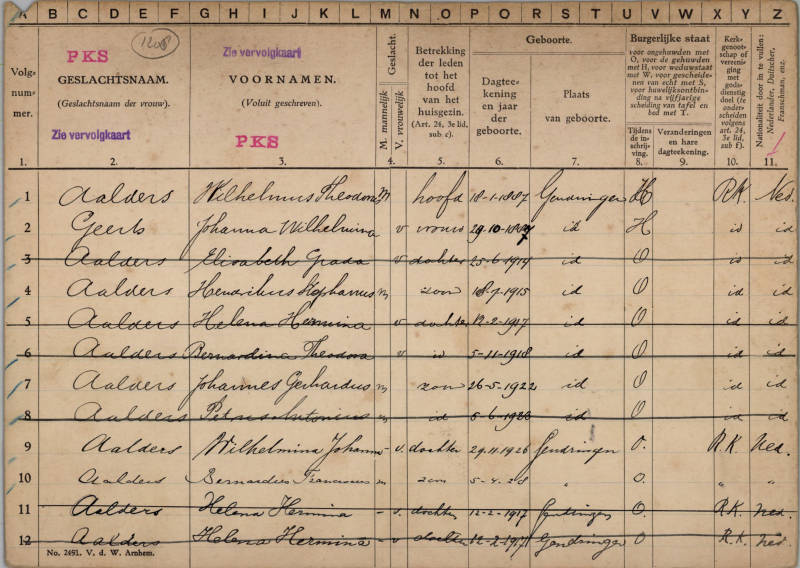 A B C D E F G H I J K L M N O P O R S T U V W X Y Z
PKS
1208
Zie vervolgkaart
Volg-
num-
mer.
GESLACHTSNAAM.
(Geslachtsnaam der vrouw).
Zie vervolgkaart
VOORNAMEN.
(Voluit geschreven).
PKS
Geslacht.
M. mannelijk
V. vrouwelijk
Betrekking
der leden
tot het
hoofd
van het
huisgezin.
(Art. 24, 3e lid,
sub c).
Geboorte.
Dagtee-
kening
en jaar
der
geboorte.
Plaats
van geboorte.
Burgerlijke staat
voor ongehuwden met
O, voor de gehuwden
met H, voor weduwstaat
met W, voor gescheide-
nen van echt met S,
voor huwelijksontbin-
ding na vijfjarige
scheiding van tafel en
bed met T.
Tijdens
de in-
schrij-
ving.
Veranderingen
en hare
dagteekening.
Kerk-
genoot-
schap of
vereeni-
ging met
gods-
dienstig
doel (te
onder-
scheiden
volgens
art. 24,
3e lid,
sub f).
Nationaliteit door in te vullen:
Nederlander, Duitscher,
Franschman, enz.
1. 2. 3. 4. 5. 6. 7. 8. 9. 10. 11.
1 Aalders Wilhelmus Theodorus m hoofd 18-1-1887 Gendringen H R.K. Ned.
2 Geerts Johanna Wilhelmina v vrouw 29-10-1887 id H id id
3 Aalders Elisabeth Grada v dochter 25-6-1914 id O id id
4 Aalders Hendrikus Stephanus m zoon 18-7-1915 id O id id
5 Aalders Helena Hermina v dochter 12-2-1917 id O id id
6 Aalders Bernardina Theodora v id 5-11-1918 id O id id
7 Aalders Johannes Gerhardus m zoon 26-5-1922 id O id id
8 Aalders Petrus Antonius m id 5-6-1923 id O id id
9 Aalders Wilhelmina Johanna - v. dochter 29.11.1926 Gendringen O. R.K. Ned.
10 Aalders Bernardus Franciscus m zoon 5-4-28 " O. " "
11 Aalders Helena Hermina - v. dochter 12-2-1917 Gendringen O. R.K. Ned.
12 Aalders Helena Hermina - v dochter 12-2-1917 Gendringen O. R.K. Ned.
No. 2491. V. d. W. Arnhem.